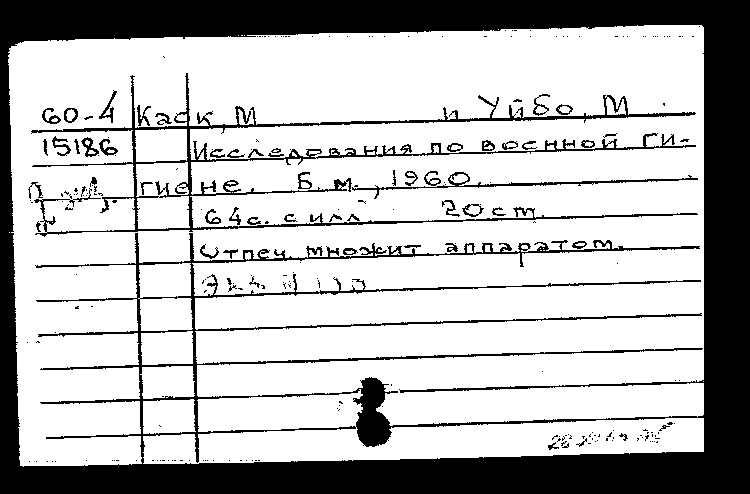 60-4 Каск, М и Уйбо, М
15186 Исследования по военной ги-
гиене. Б. м., 1960.
64с. с илл. 20 cm.
Отпеч. множит аппаратом.